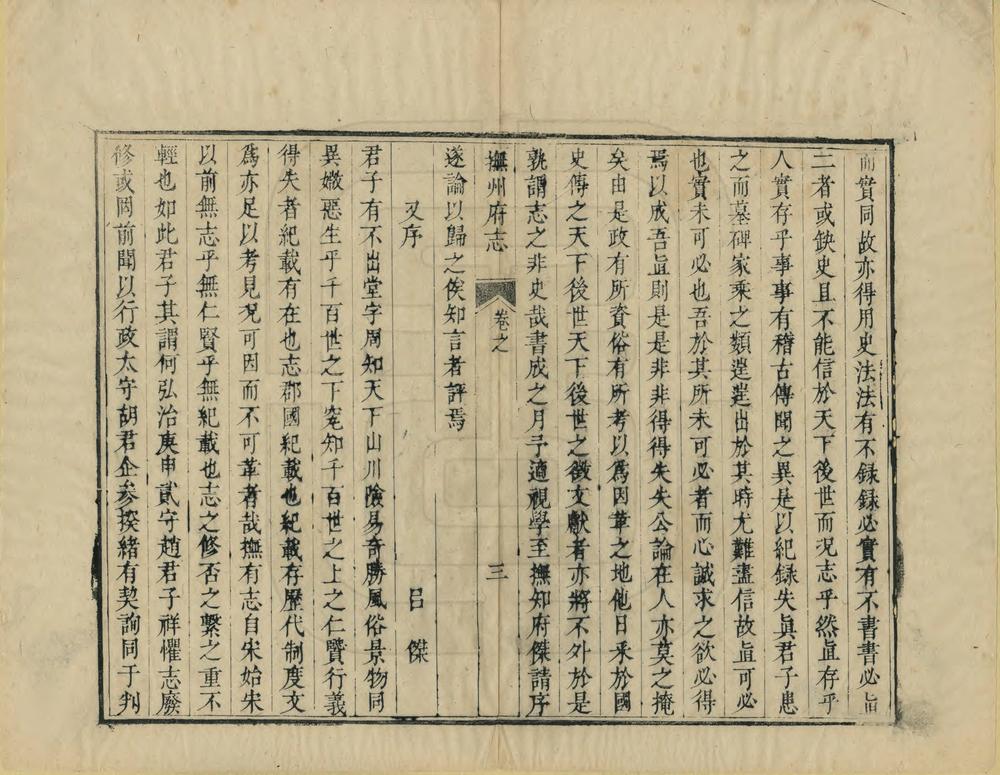 而實同故亦得用史法法有不録録必實有不書書必直
二者或缺史且不能信於天下後世而况志乎然直存乎
人實存乎事事有稽古傳聞之異是以紀録失眞君子患
之而墓碑家乘之類遑遑出於其時尤難盡信故直可必
也實未可必也吾於其所未可必者而心誠求之欲必得
焉以成吾直則是是非非得得失失公論在人亦莫之掩
矣由是政有所資俗有所考以爲因革之地他日釆於國
史傳之天下後世天下後世之徵文獻者亦將不外於是
孰謂志之非史哉書成之月予適視學至撫知府傑請序
撫州府志 卷之 三
遂論以歸之俟知言者評焉
又序 吕傑
君子有不出堂字周知天下山川險易奇勝風俗景物同
異媺惡生乎千百世之下䆒知千百世之上之仁賢行義
得失者紀載有在也志郡國紀載也紀載存歷代制度文
爲亦足以考見况可因而不可革者哉撫有志自宋始宋
以前無志乎無仁賢乎無紀載也志之修否之繫之重不
輕也如此君子其謂何弘治庚申貳守趙君子祥懼志廢
修或罔前聞以行政太守胡君企參揆緒有契詢同于判